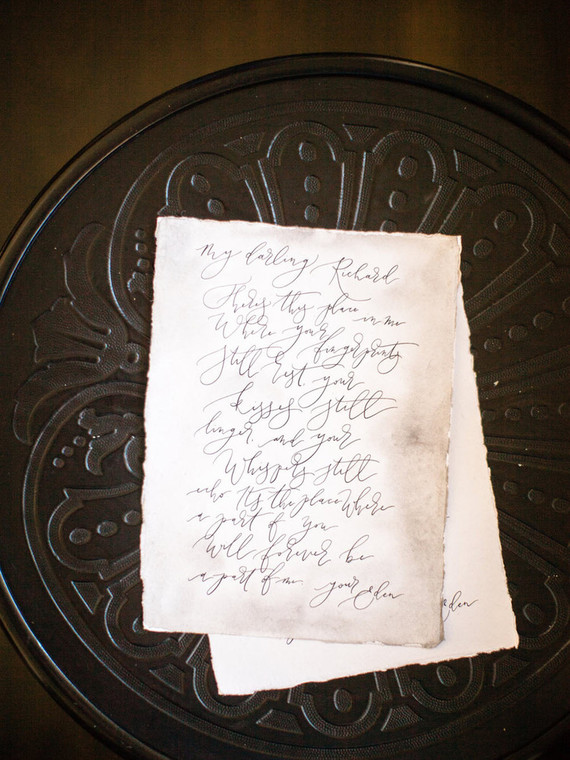 My darling Richard
Theres this place
in me
Where your
fingerprints
still rest your
kisses still
linger and your
Whispers still
echo It's the place Where
a part of you
Will forever be
a part of me your Eden
Eden